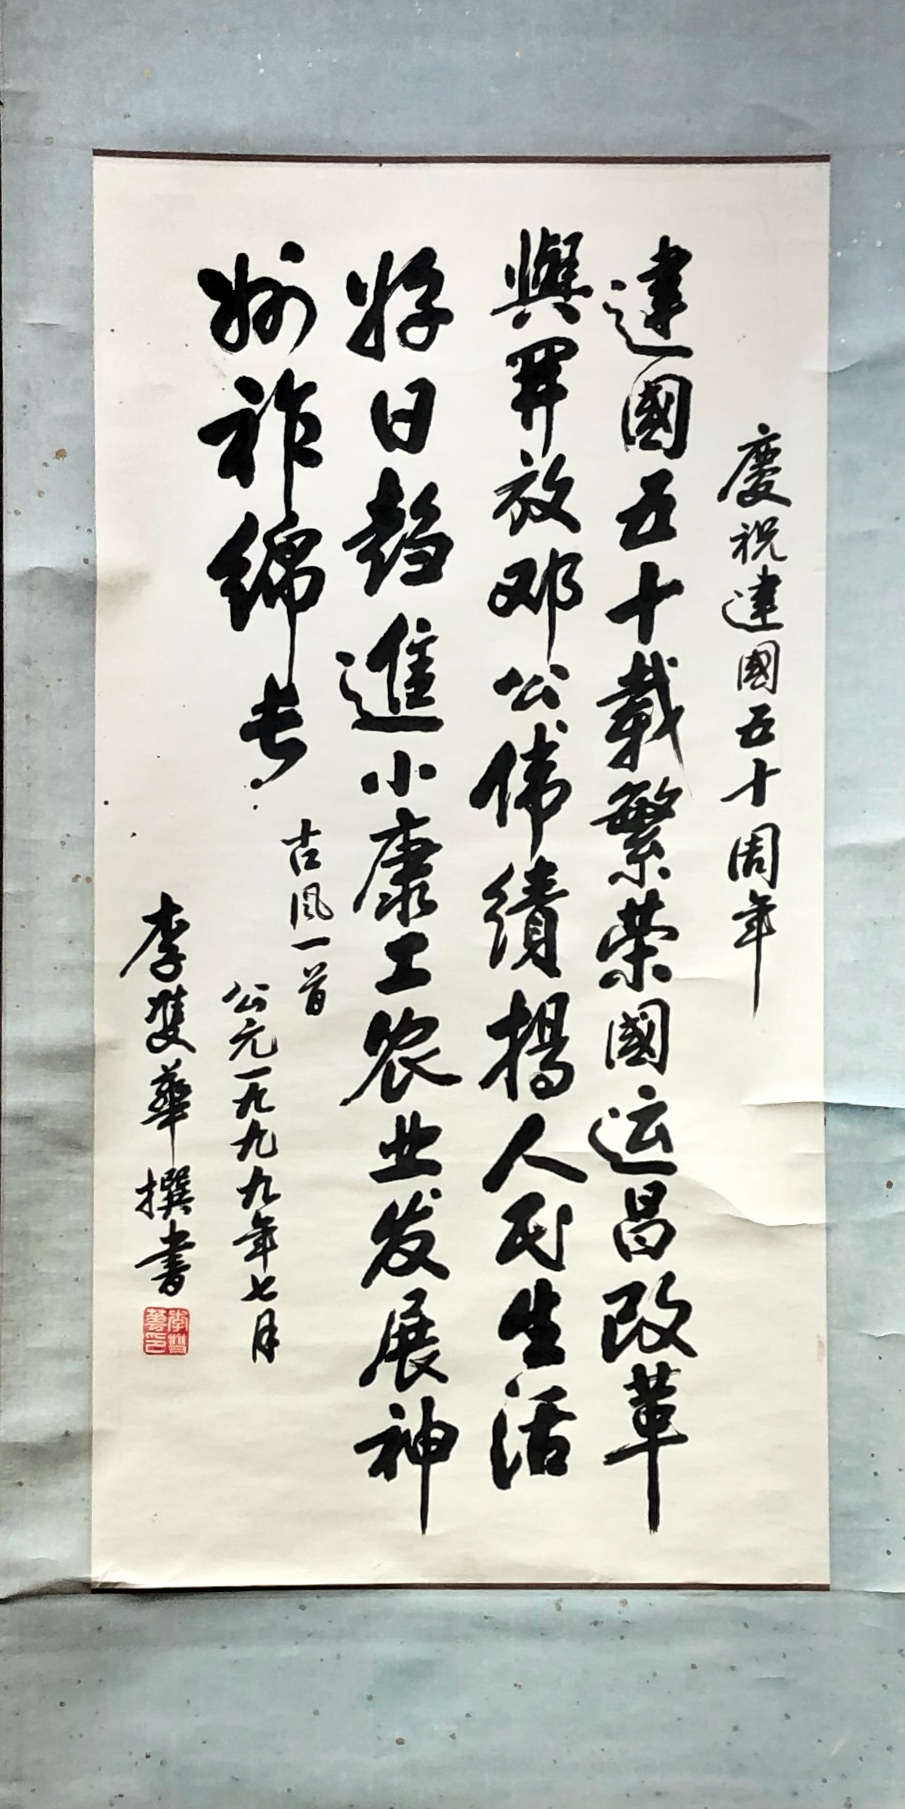 慶祝建國五十周年
建國五十載繁荣國运昌改革
與开放邓公伟績揚人民生活
好日趋進小康工农业发展神
州祚綿长
古风一首
公元一九九九年七月
李雙華撰書
李雙華印